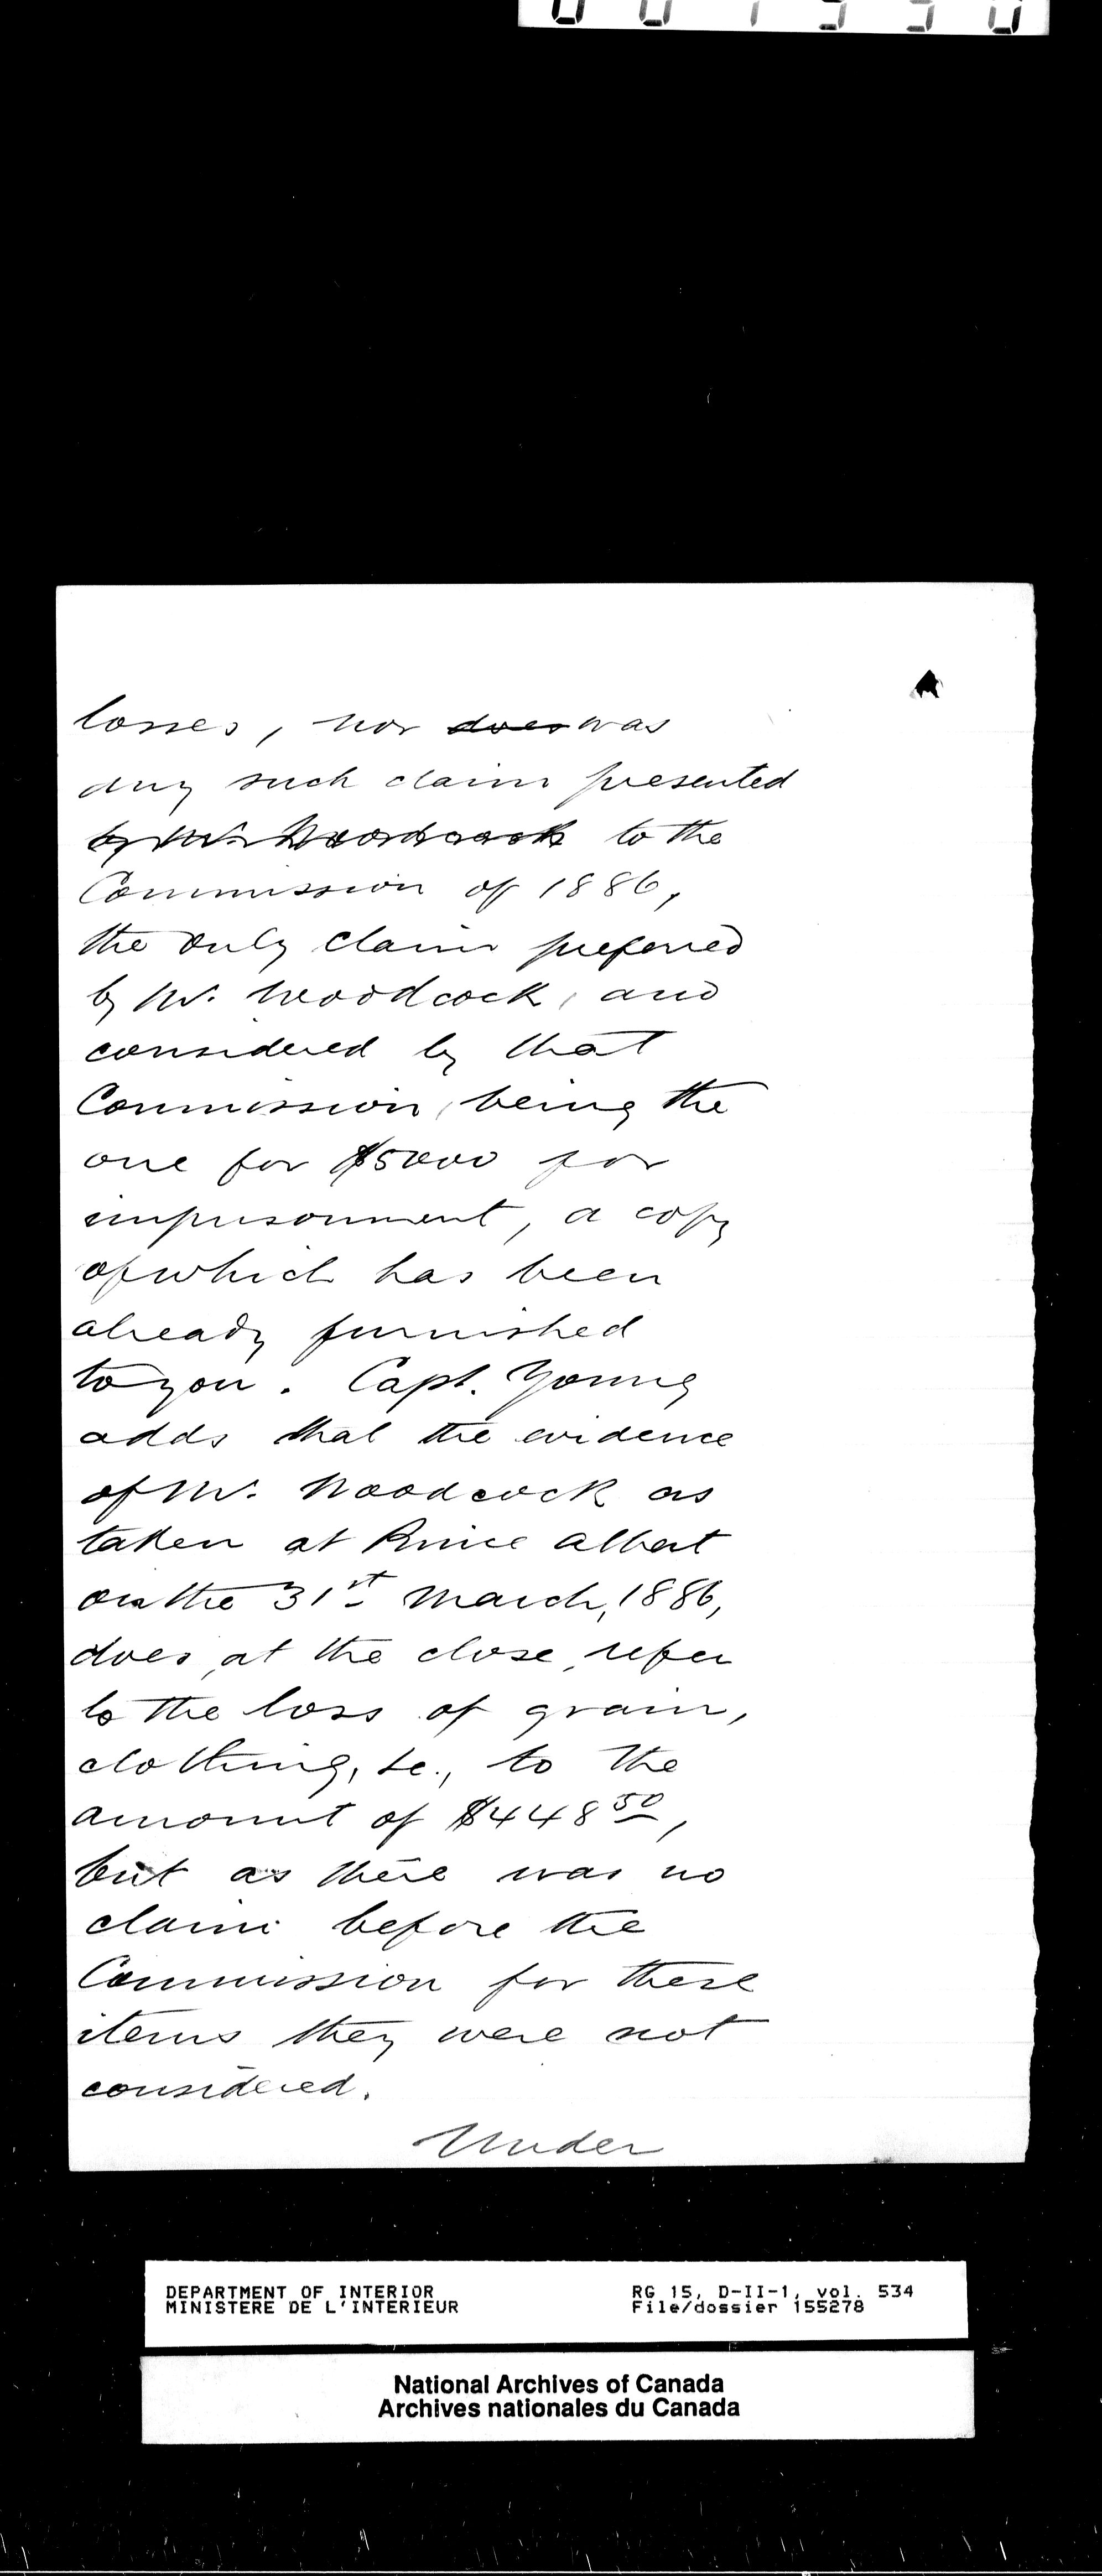 losses, nor does was
any such claim presented
by Mr. Woodcock to the
Commission of 1886,
the only claim preferred
by Mr. Woodcock, and
considered by that
Commission, being the
one for $5000 for
imprisonment, a copy
of which has been
already furnished
to you. Capt. Young
adds that the evidence
of Mr. Woodcock as
taken at Prince Albert
on the 31st March, 1886,
does, at the close, refer
to the loss of grain,
clothing, &c., to the
amount of $448 50,
but as there was no
claim before the
Commission for these
items they were not
considered.
Under
DEPARTMENT OF INTERIOR RG 15, D-II-1, vol. 534
MINISTERE DE L'INTERIEUR File/dossier 155278
National Archives of Canada
Archives nationales du Canada